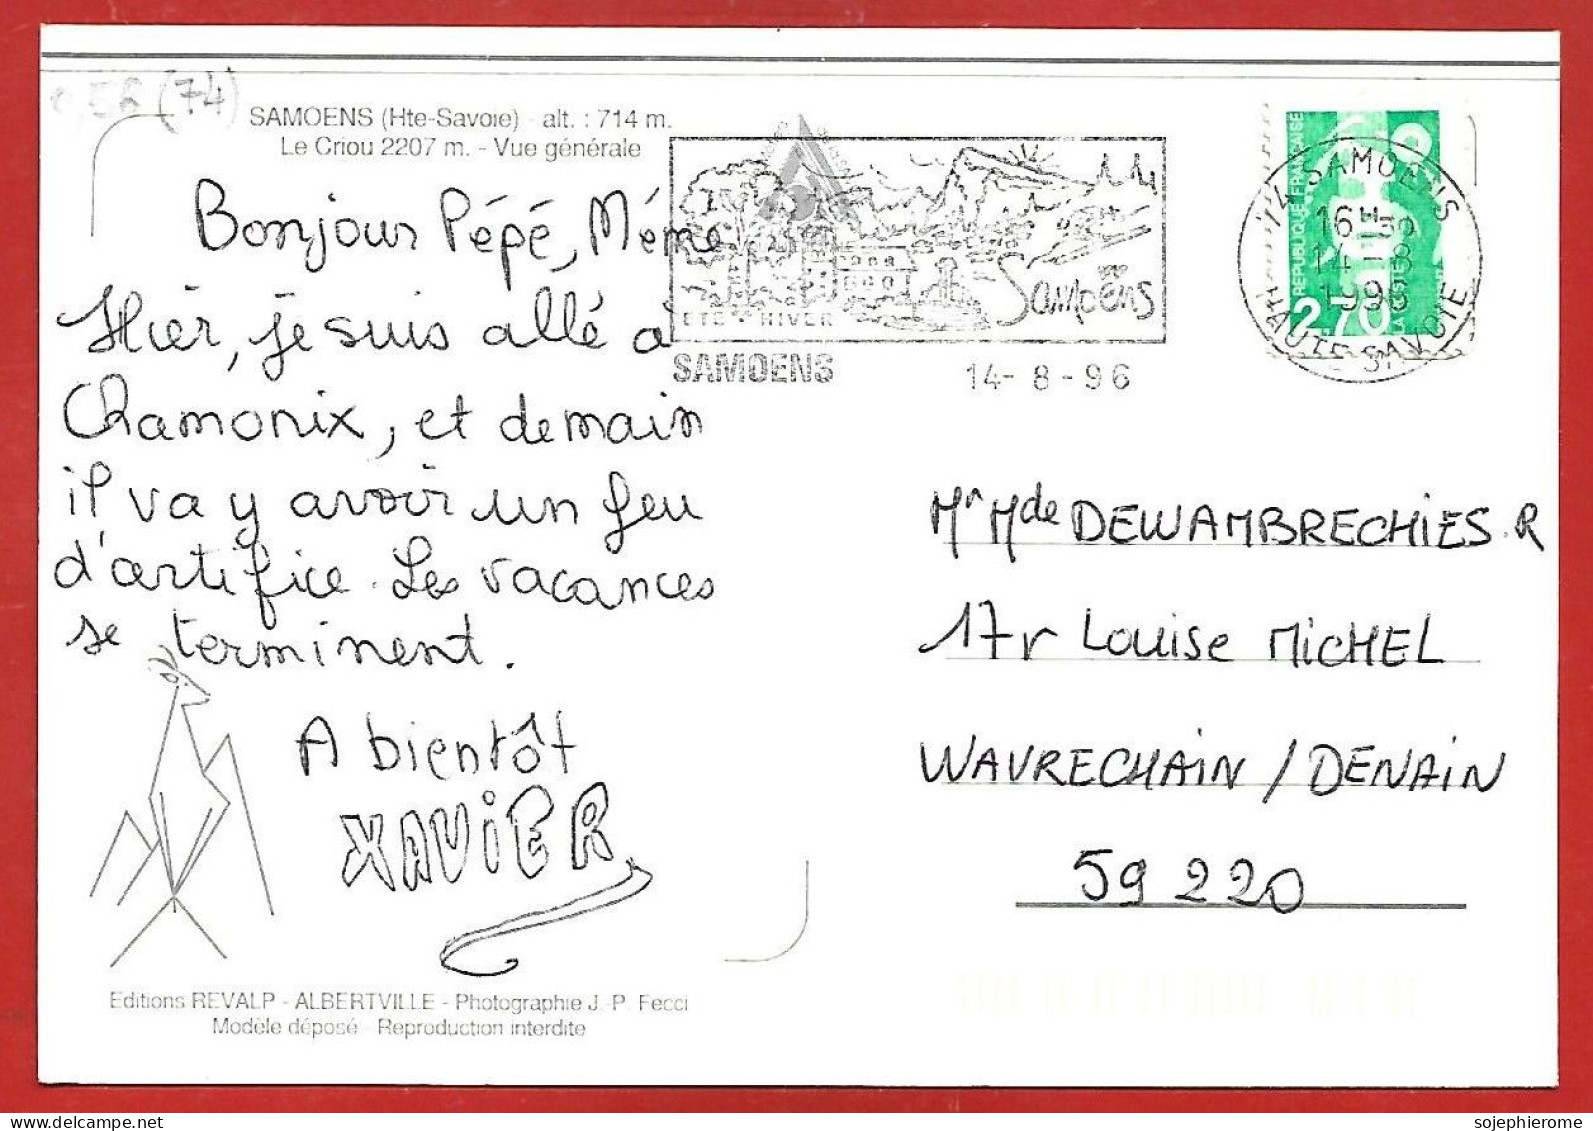 (74)
SAMOENS (Hte-Savoie) - alt. : 714 m.
Le Criou 2207 m. - Vue générale
Bonjour Pépé, Mémé
Hier, je suis allé à
Chamonix, et demain
il va y avoir un feu
d'artifice. Les vacances
se terminent.
A bientôt
XAVIER
Editions REVALP - ALBERTVILLE - Photographie J.-P. Fecci
Modèle déposé - Reproduction interdite
Samoëns
ETE - HIVER
SAMOENS 14-8-96
REPUBLIQUE FRANÇAISE
2,70
LA POSTE
74 SAMOENS
16H
14-8
1996
HAUTE-SAVOIE
Mr Mde DEWAMBRECHIES. R
17 r Louise MiCHEL
WAVRECHAiN / DENAiN
59 220
sojephierome